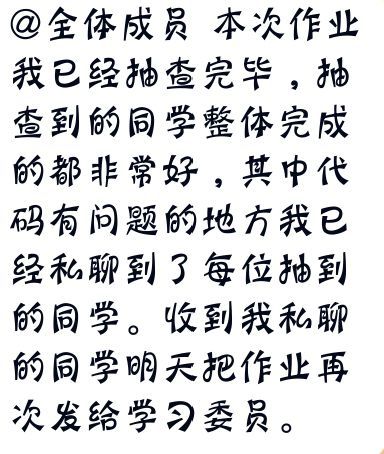 @全体成员 本次作业
我已经抽查完毕，抽
查到的同学整体完成
的都非常好，其中代
码有问题的地方我已
经私聊到了每位抽到
的同学。收到我私聊
的同学明天把作业再
次发给学习委员。